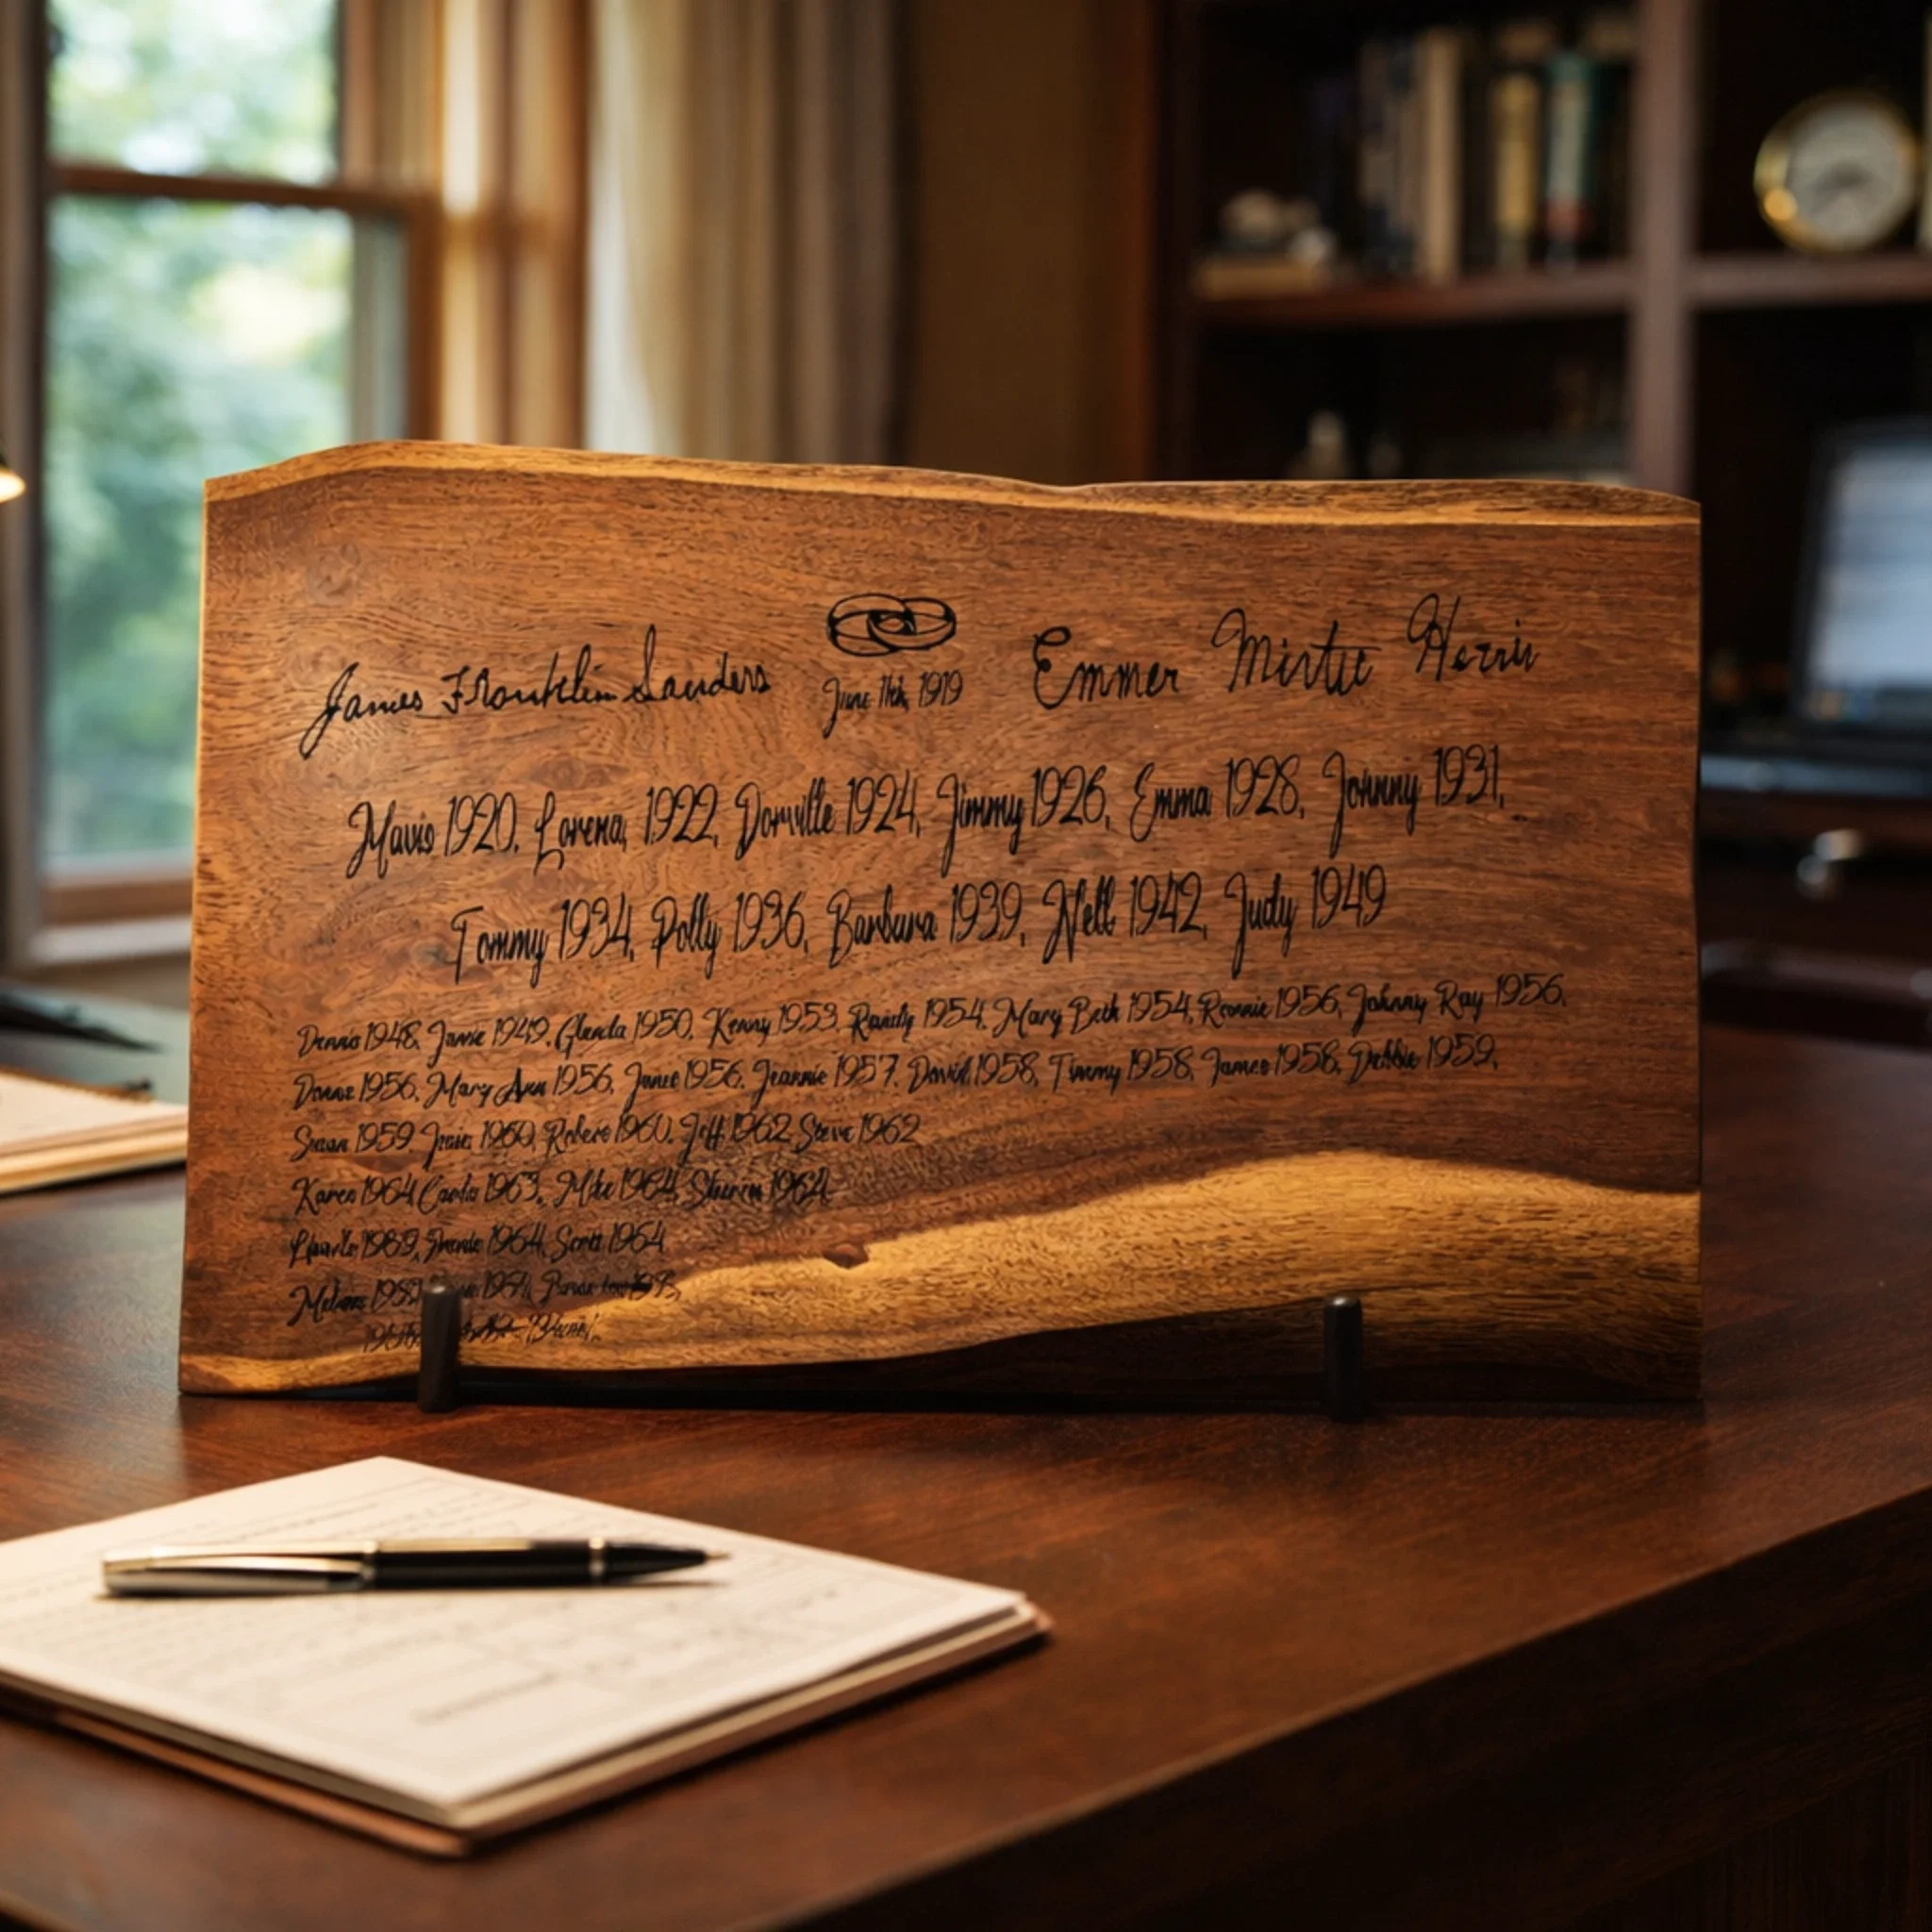 James Franklin Sanders
June 11th, 1919
Emmer Mirtie Harris
Mavis 1920, Lorena, 1922, Dorville 1924, Jimmy 1926, Emma 1928, Johnny 1931,
Tommy 1934, Polly 1936, Barbara 1939, Nell 1942, Judy 1949
Dennis 1948, Janie 1949, Glenda 1950, Kenny 1953, Randy 1954, Mary Beth 1954, Ronnie 1956, Johnny Ray 1956,
1956, Mary Ann 1956, Janet 1956, Jeannie 1957, David 1958, Timmy 1958, James 1958, Debbie 1959,
Susan 1959, 1960, Robert 1960, Jeff 1962, Steve 1962
Karen 1964, 1963, Mike 1964, 1964,
1964, Scott 1964